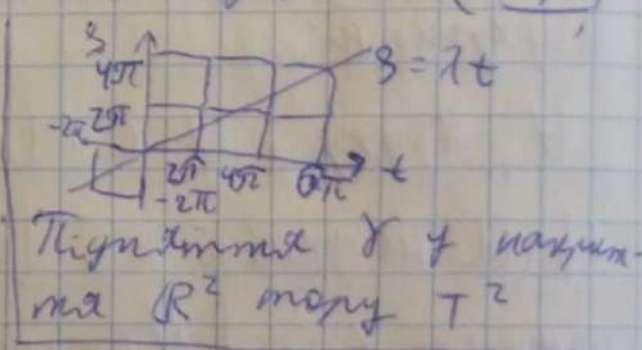 s
4π
s = λt
-2π 2π
2π 4π 6π t
-2π
Підняття γ у накрит-
тя ℝ² тору T²